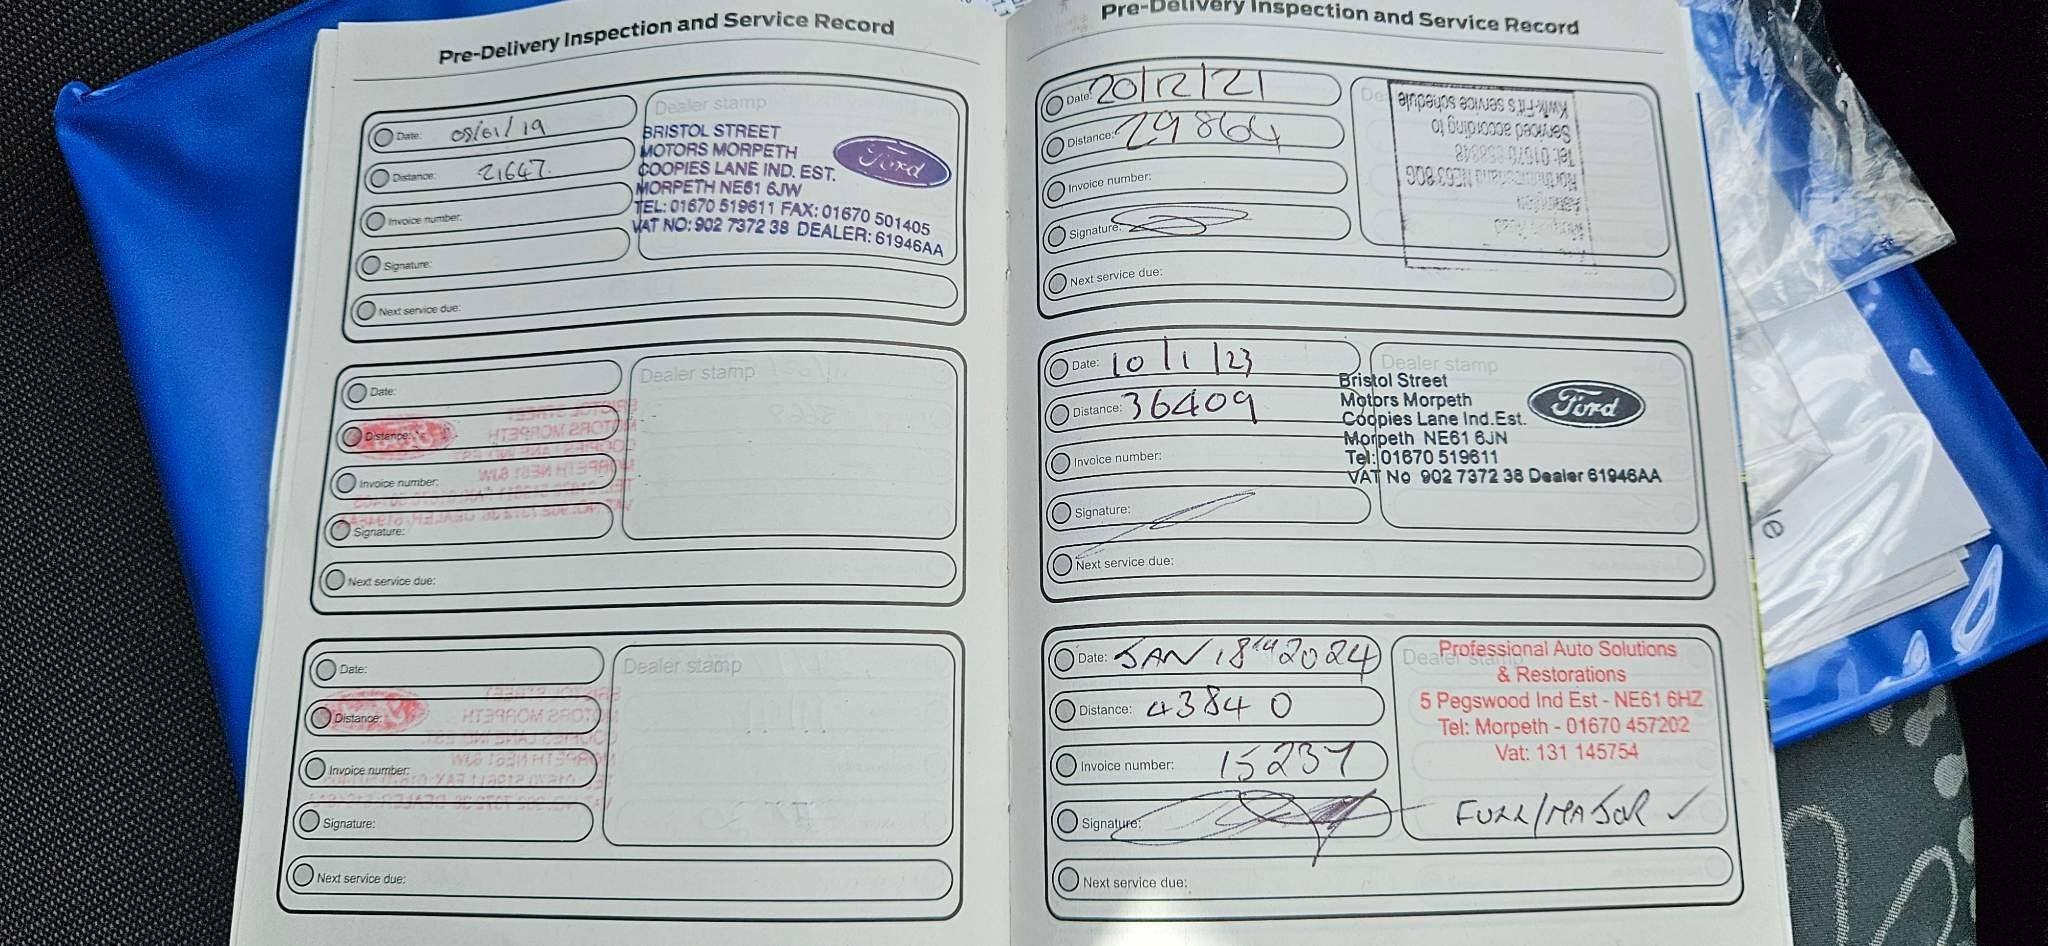 Pre-Delivery Inspection and Service Record
Date: 08/01/19
Distance: 21647
Invoice number:
Signature:
Next service due:
Dealer stamp
BRISTOL STREET
MOTORS MORPETH
COOPIES LANE IND. EST.
MORPETH NE61 6JW
TEL: 01670 519611 FAX: 01670 501405
VAT NO: 902 7372 38 DEALER: 61946AA
Ford
Date:
Distance:
Invoice number:
Signature:
Next service due:
Dealer stamp
Date:
Distance:
Invoice number:
Signature:
Next service due:
Dealer stamp
Pre-Delivery Inspection and Service Record
Date: 20/12/21
Distance: 29864
Invoice number:
Signature:
Next service due:
Tel: 01670
Serviced according to
Kwik-Fit's service schedule
Date: 10/1/23
Distance: 36409
Invoice number:
Signature:
Next service due:
Dealer stamp
Bristol Street
Motors Morpeth
Coopies Lane Ind.Est.
Morpeth NE61 6JN
Tel: 01670 519611
VAT No 902 7372 38 Dealer 61946AA
Ford
Date: JAN 18TH 2024
Distance: 43840
Invoice number: 15237
Signature:
Next service due:
Professional Auto Solutions
& Restorations
5 Pegswood Ind Est - NE61 6HZ
Tel: Morpeth - 01670 457202
Vat: 131 145754
FULL/MAJOR ✓